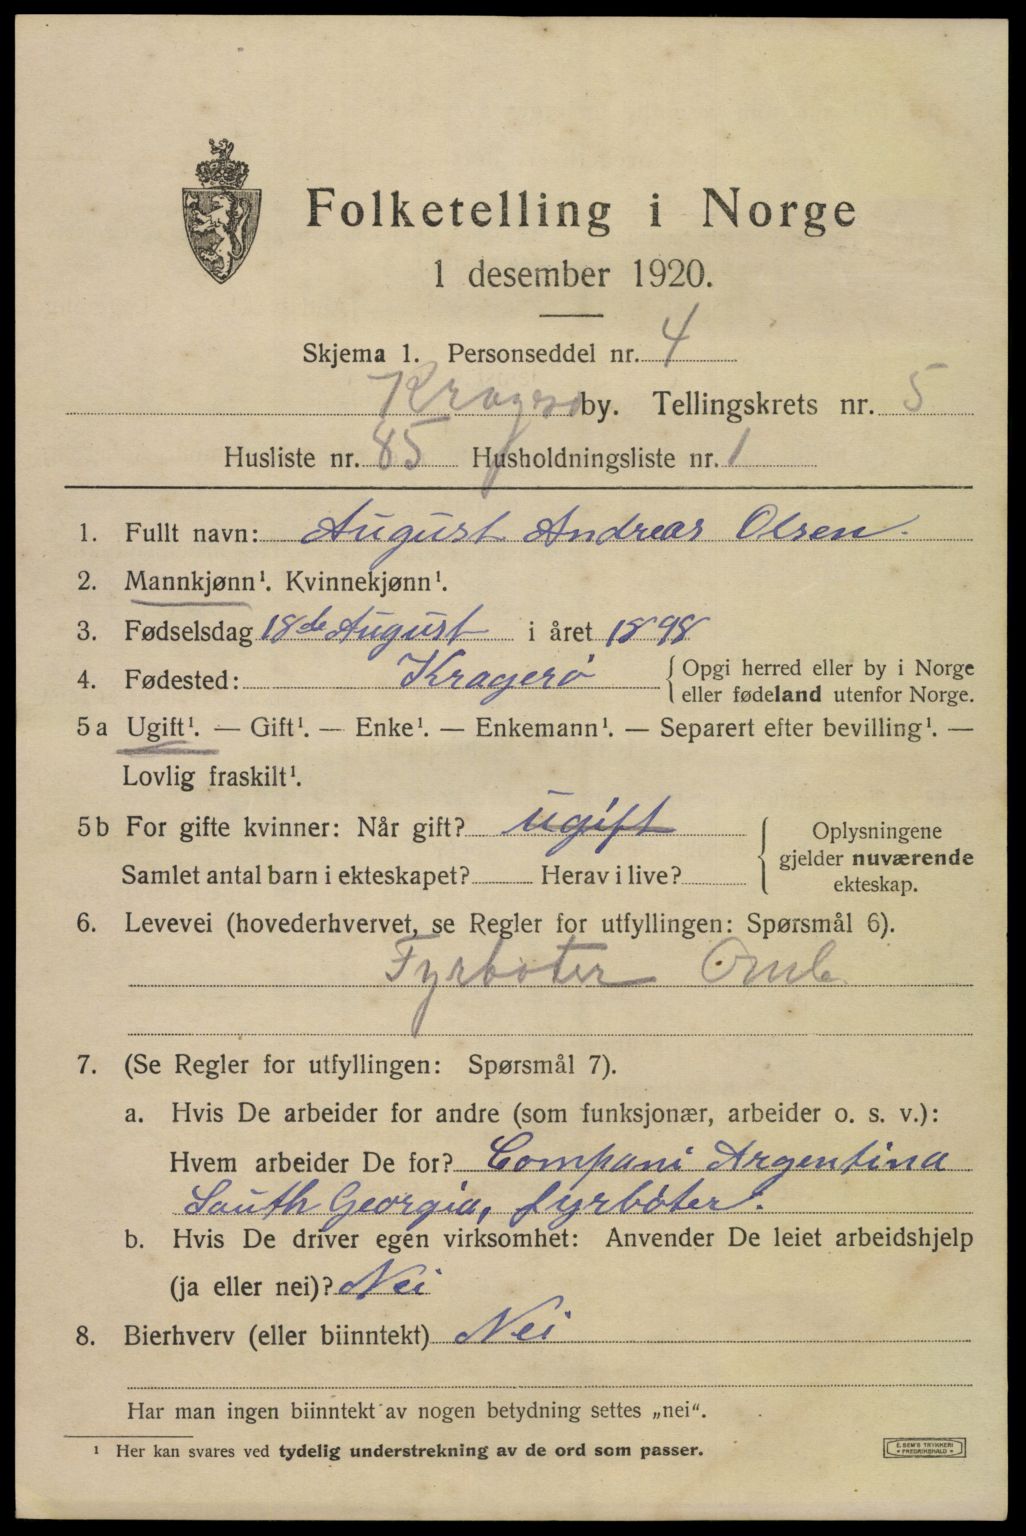 Folketelling i Norge
1 desember 1920.
Skjema 1. Personseddel nr. 4
Kragerø by. Tellingskrets nr. 5
Husliste nr. 85 Husholdningsliste nr. 1
1. Fullt navn: August Andreas Olsen.
2. Mannkjønn¹. Kvinnekjønn¹.
3. Fødselsdag 18de August i året 1898
4. Fødested: Kragerø { Opgi herred eller by i Norge
eller fødeland utenfor Norge.
5 a Ugift¹. — Gift¹. — Enke¹. — Enkemann¹. — Separert efter bevilling¹. —
Lovlig fraskilt¹.
5 b For gifte kvinner: Når gift? ugift
Samlet antal barn i ekteskapet? Herav i live?
{ Oplysningene
gjelder nuværende
ekteskap.
6. Levevei (hovederhvervet, se Regler for utfyllingen: Spørsmål 6).
Fyrbøter
7. (Se Regler for utfyllingen: Spørsmål 7).
a. Hvis De arbeider for andre (som funksjonær, arbeider o. s. v.):
Hvem arbeider De for? Compani Argentina
South Georgia, fyrbøter.
b. Hvis De driver egen virksomhet: Anvender De leiet arbeidshjelp
(ja eller nei)? Nei
8. Bierhverv (eller biinntekt) Nei
Har man ingen biinntekt av nogen betydning settes „nei“.
¹ Her kan svares ved tydelig understrekning av de ord som passer.
E. SEM'S TRYKKERI
* FREDRIKSHALD *